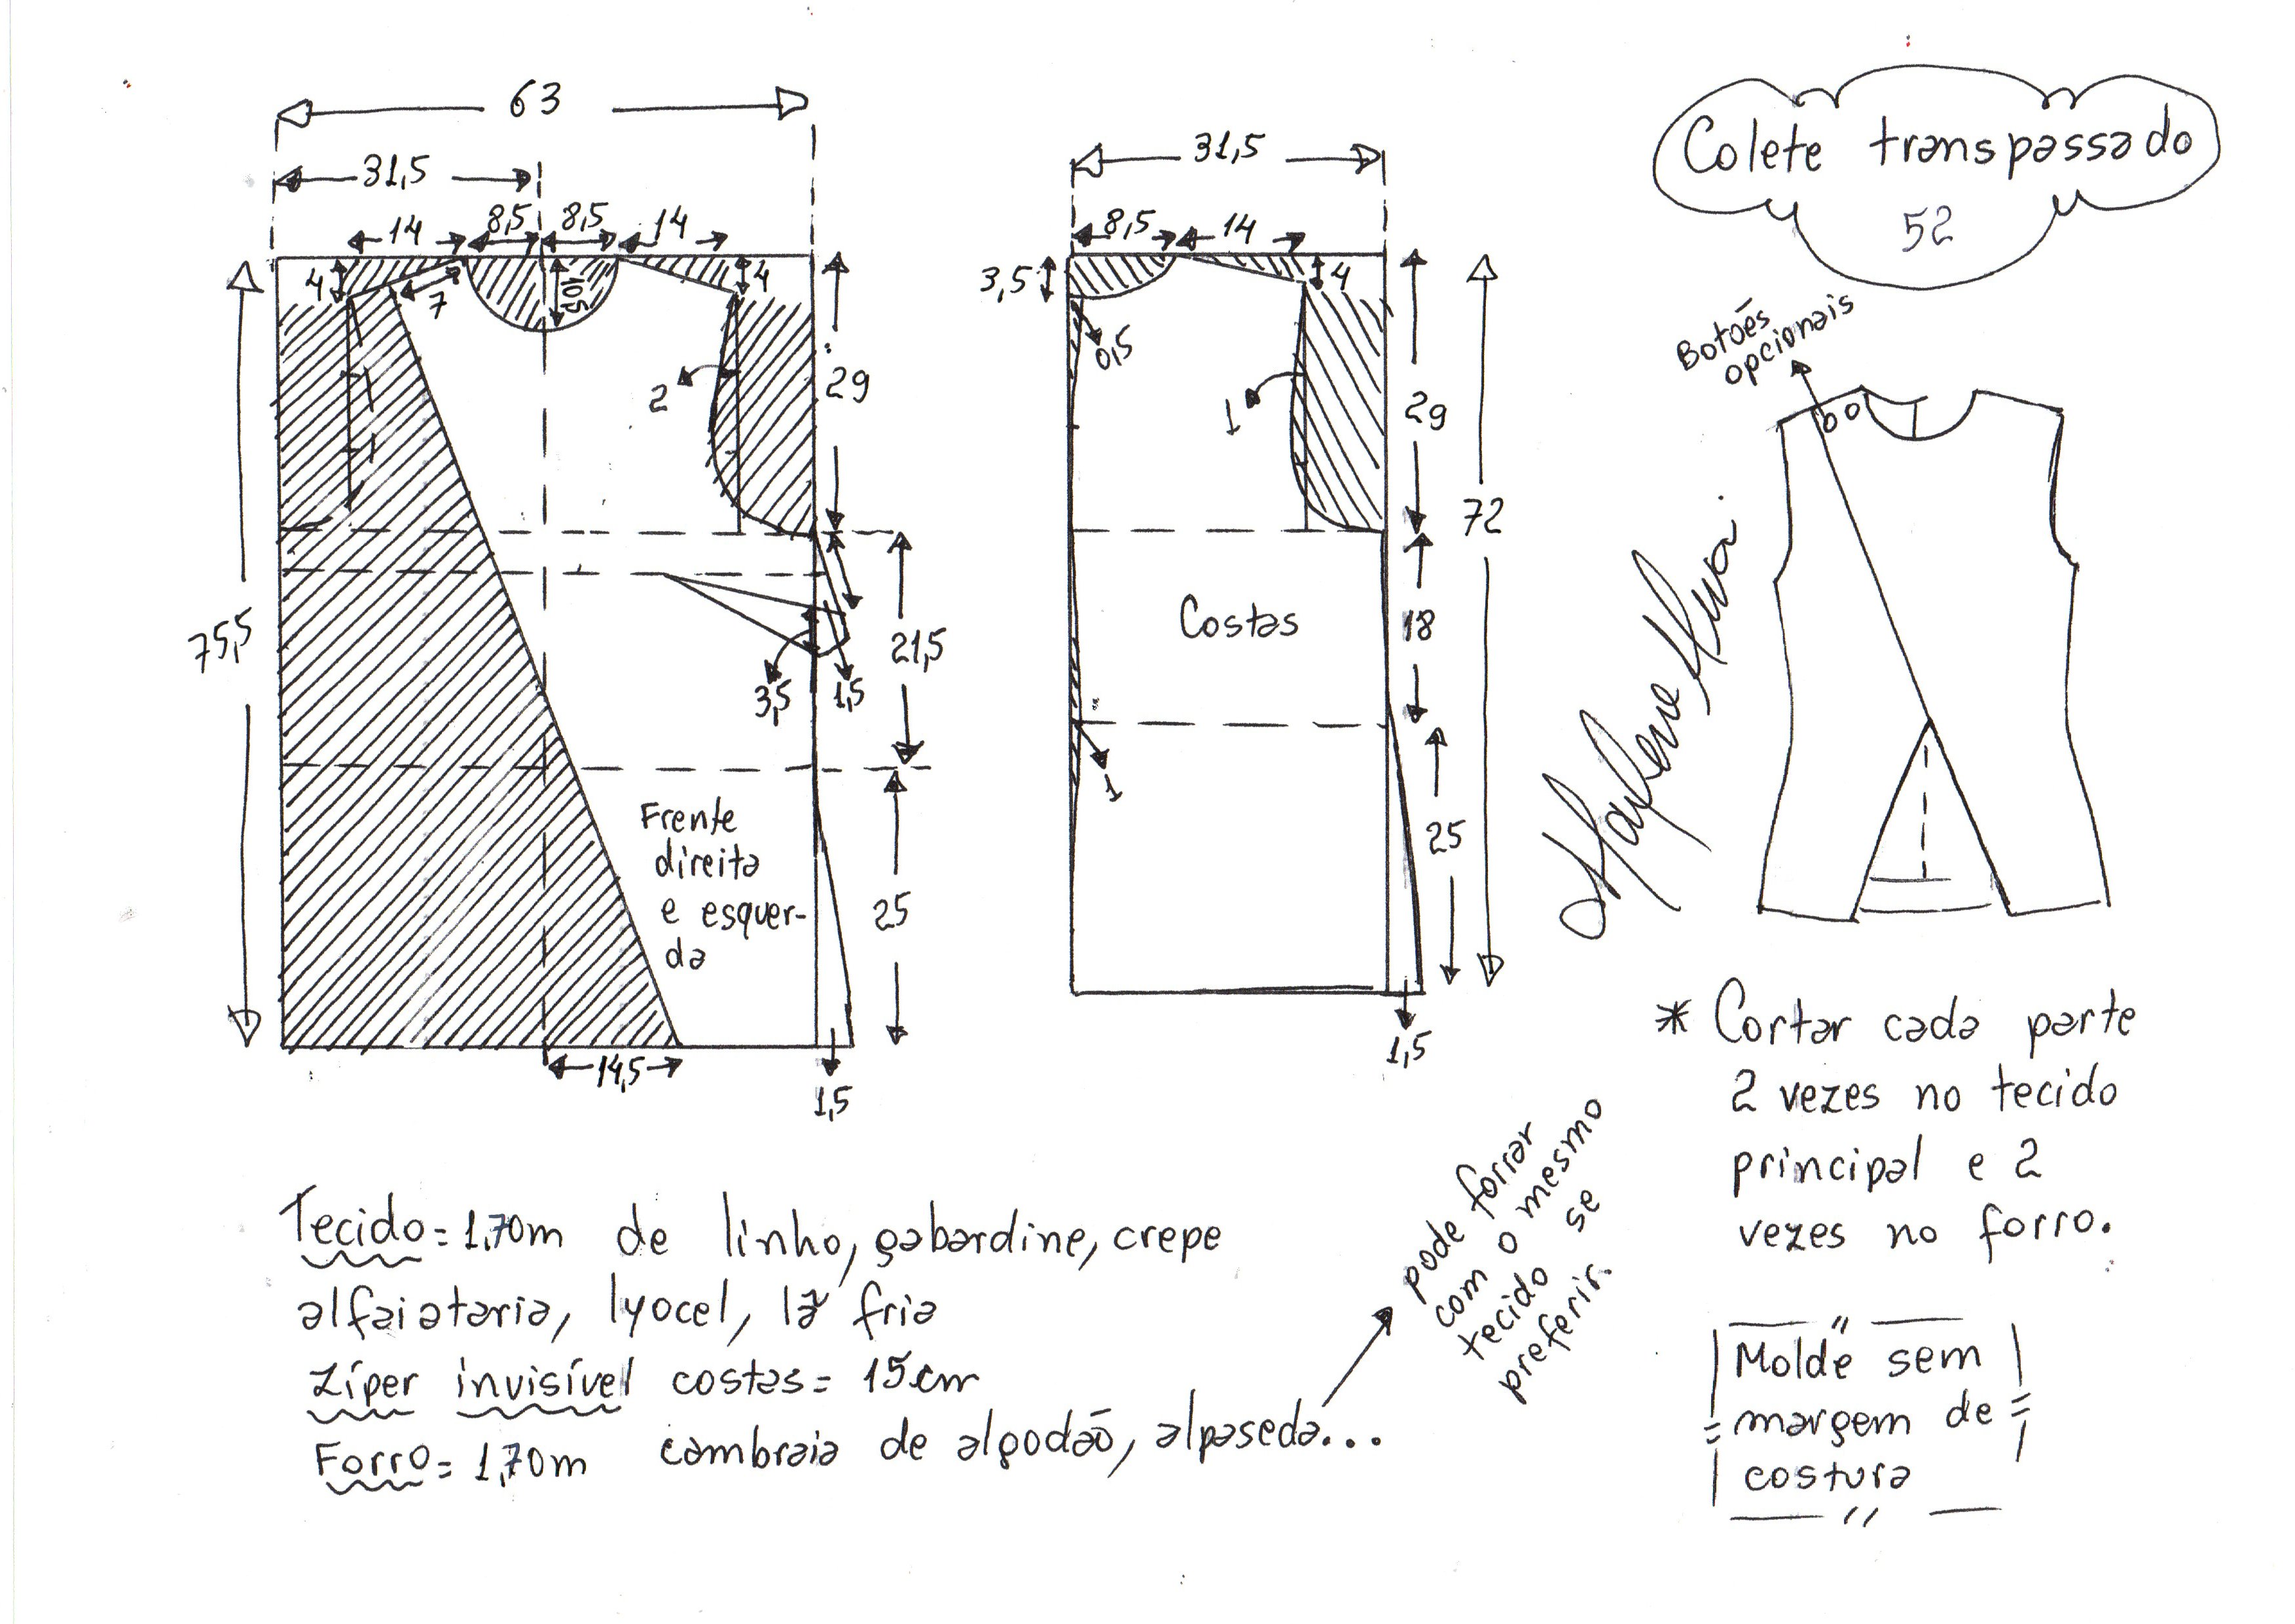 63
31,5
14
8,5
8,5
14
4
7
10,5
4
2
29
75,5
21,5
3,5
1,5
Frente
direita
e esquer-
da
25
14,5
1,5
31,5
8,5
14
3,5
4
0,5
1
29
72
Costas
18
1
25
1,5
Colete transpassado
52
Botoẽs
opcionais
Marlene Mukai
* Cortar cada parte
2 vezes no tecido
principal e 2
vezes no forro.
Molde sem
margem de
costura
Tecido = 1,70m de linho, gabardine, crepe
alfaiataria, lyocel, lã fria
Zíper invisível costas = 15cm
Forro = 1,70m cambraia de algodão, alpaseda...
pode forrar
com o mesmo
tecido se
preferir.